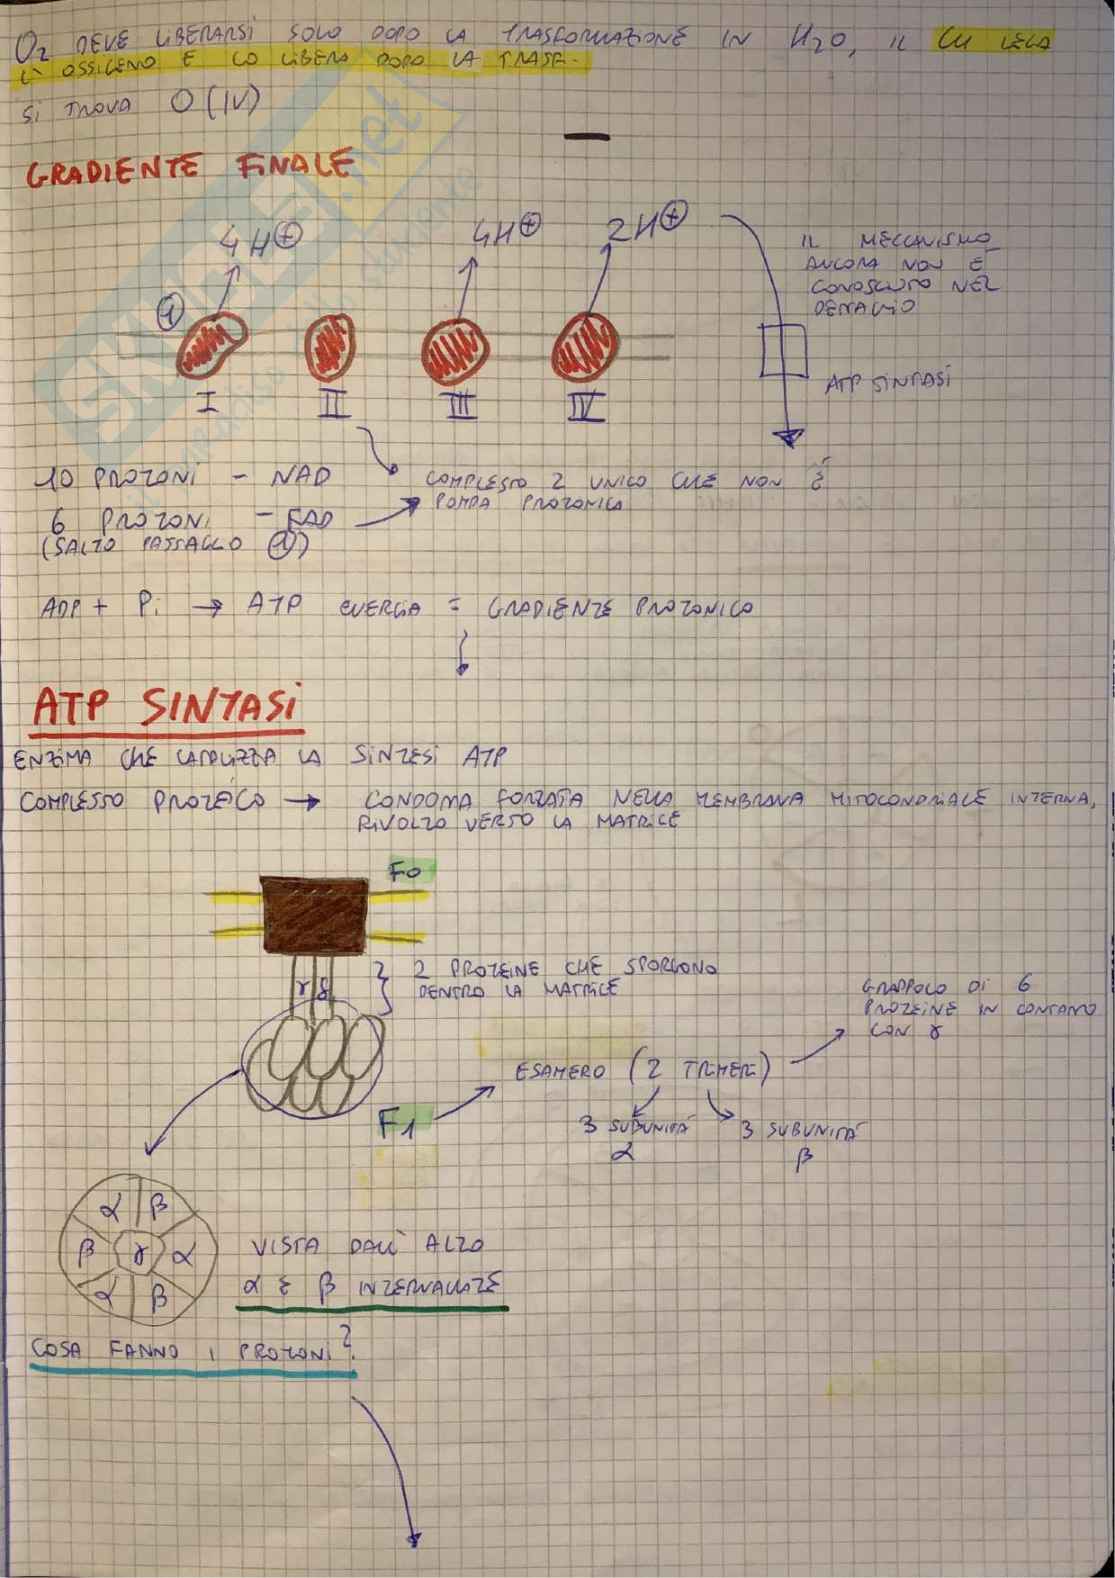 O2 DEVE LIBERARSI SOLO DOPO LA TRASFORMAZIONE IN H2O, IL CU LEGA
L'OSSIGENO E LO LIBERA DOPO LA TRASF.
SI TROVA O(IV)
GRADIENTE FINALE
4H⊕ 4H⊕ 2H⊕
IL MECCANISMO
ANCORA NON È
CONOSCIUTO NEL
DETTAGLIO
①
ATP SINTASI
I II III IV
10 PROTONI - NAD
COMPLESSO 2 UNICO CHE NON È
POMPA PROTONICA
6 PROTONI - FAD
(SALTO PASSAGGIO ①)
ADP + Pi → ATP ENERGIA = GRADIENTE PROTONICO
ATP SINTASI
ENZIMA CHE CATALIZZA LA SINTESI ATP
COMPLESSO PROTEICO → CONDOMA FORZATA NELLA MEMBRANA MITOCONDRIALE INTERNA,
RIVOLTO VERSO LA MATRICE
F0
2 PROTEINE CHE SPORGONO
DENTRO LA MATRICE
γ δ
GRAPPOLO DI 6
PROTEINE IN CONTATTO
CON γ
ESAMERO (2 TRIMERI)
F1
3 SUBUNITÀ
α
3 SUBUNITÀ
β
α β
β γ α
α β
VISTA DALL'ALTO
α E β INTERVALLATE
COSA FANNO I PROTONI?
SKUOLA.net